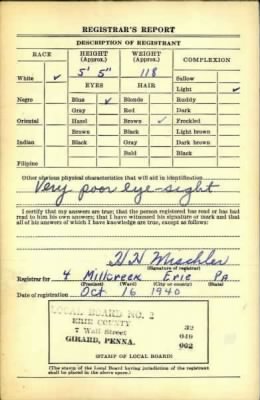 REGISTRAR'S REPORT
DESCRIPTION OF REGISTRANT
RACE HEIGHT (Approx.) WEIGHT (Approx.) COMPLEXION
White ✓ 5' 5" 118 Sallow
EYES HAIR Light ✓
Negro Blue ✓ Blonde Ruddy
Gray Red Dark
Oriental Hazel Brown ✓ Freckled
Brown Black Light brown
Indian Black Gray Dark brown
Bald Black
Filipino
Other obvious physical characteristics that will aid in identification
Very poor eye-sight
I certify that my answers are true; that the person registered has read or has had
read to him his own answers; that I have witnessed his signature or mark and that
all of his answers of which I have knowledge are true, except as follows:
H H
(Signature of registrar)
Registrar for 4 Millcreek Erie Pa
(Precinct) (Ward) (City or county) (State)
Date of registration Oct 16 1940
LOCAL BOARD NO. 2
ERIE COUNTY
7 Wall Street
GIRARD, PENNA.
(STAMP OF LOCAL BOARD)
(The stamp of the Local Board having jurisdiction of the registrant
shall be placed in the above space.)